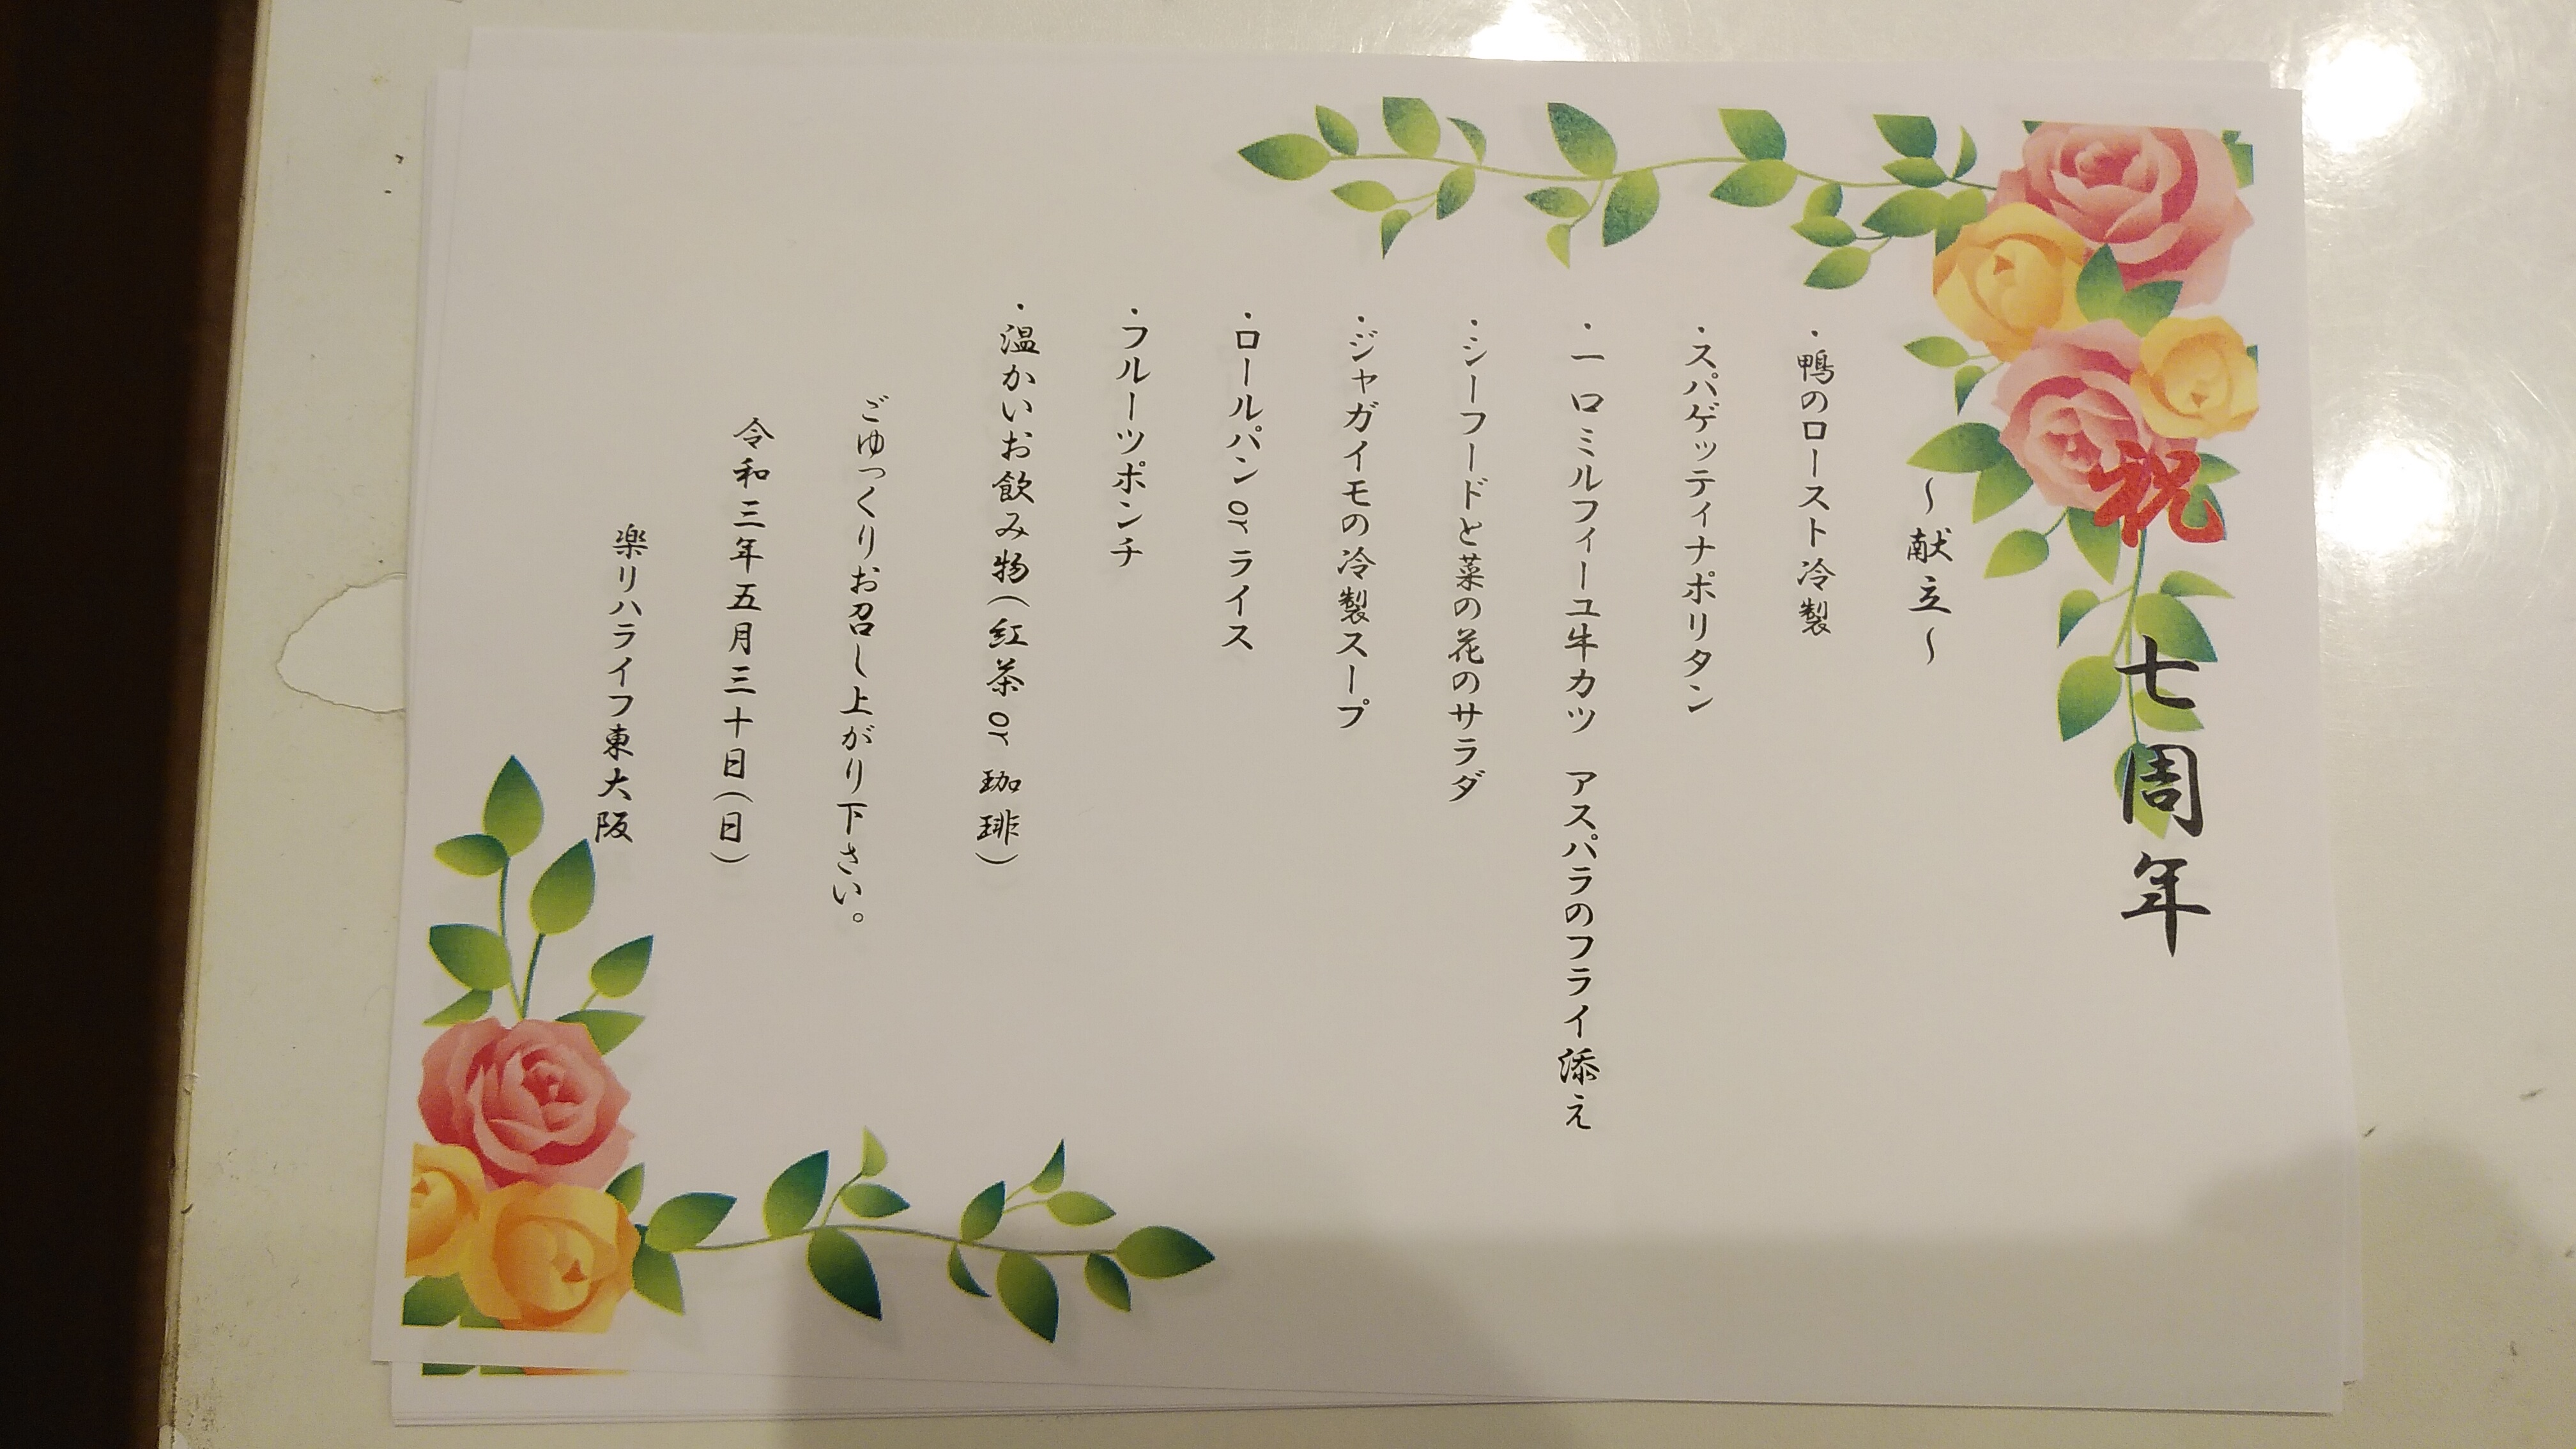 祝 七周年
～献立～
・鴨のロースト冷製
・スパゲッティナポリタン
・一口ミルフィーユ牛カツ アスパラのフライ添え
・シーフードと菜の花のサラダ
・ジャガイモの冷製スープ
・ロールパン or ライス
・フルーツポンチ
・温かいお飲み物（紅茶 or 珈琲）
ごゆっくりお召し上がり下さい。
令和三年五月三十日（日）
楽リハライフ東大阪